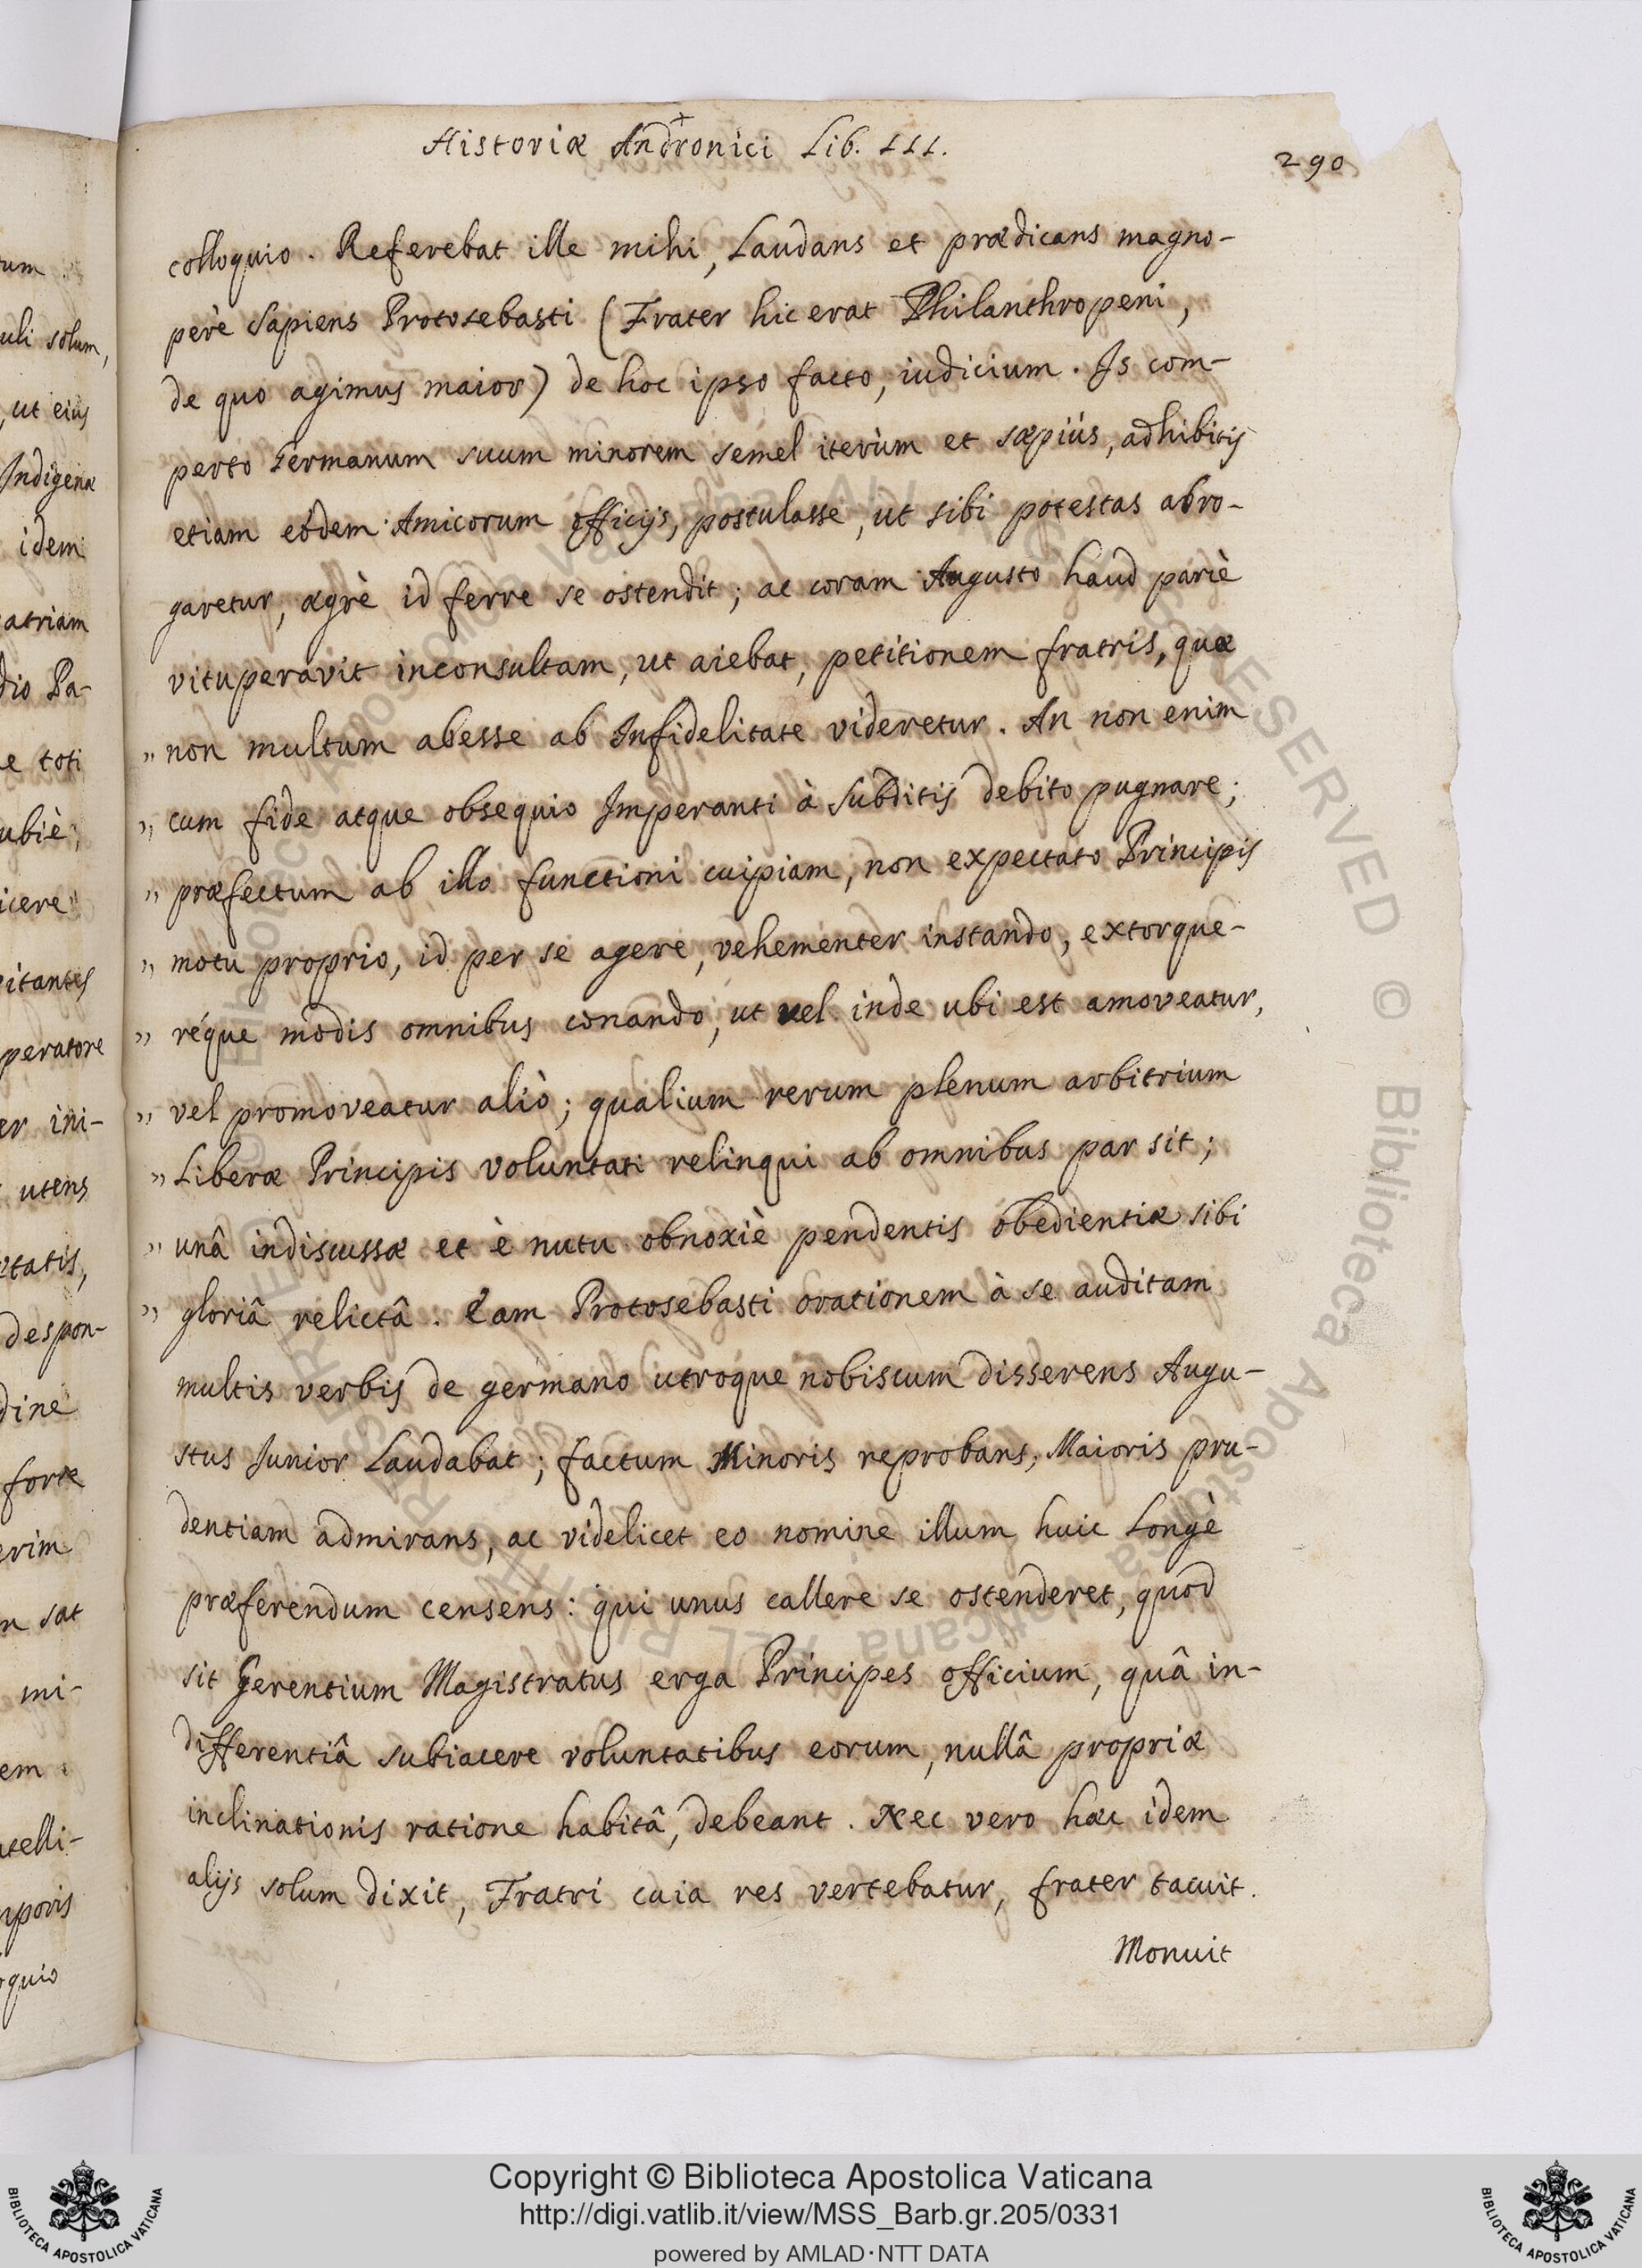 tum
uli solum,
, ut eius
Indigenæ
idem
atriam
dio Pa-
e toti
ubiè,
icere
itantes
peratore
er ini-
utens
tatis,
despon-
dine
forte
erim
n sat
mi-
em
telli-
rporis
quio
Historiæ Andronici Lib. III.
290
colloquio. Referebat ille mihi, Laudans et prædicans magno-
perè sapiens Protosebasti (Frater hic erat Philanthropeni,
de quo agimus maior) de hoc ipso facto, iudicium. Is com-
perto Germanum suum minorem semel iterùm et sæpiùs, adhibitis
etiam eódem Amicorum officijs, postulasse, ut sibi potestas abro-
garetur, ægrè id ferre se ostendit; ac coram Augusto haud pariè
vituperavit inconsultam, ut aiebat, petitionem fratris, quæ
" non multum abesse ab Infidelitate videretur. An non enim
" cum fide atque obsequio Imperanti à Subditis debito pugnare;
" præfectum ab illo functioni cuipiam, non expectato Principis
" motu proprio, id per se agere, vehementer instando, extorque-
" réque modis omnibus conando, ut vel inde ubi est amoveatur,
" vel promoveatur aliò; qualium rerum plenum arbitrium
" Liberæ Principis voluntati relinqui ab omnibus par sit;
" unâ indiscussæ et è nutu obnoxiè pendentis obedientiæ sibi
" gloriâ relictâ. Eam Protosebasti orationem à se auditam
multis verbis de germano utroque nobiscum disserens Augu-
stus Junior Laudabat; factum Minoris reprobans, Maioris pru-
dentiam admirans, ac videlicet eo nomine illum huic Longè
præferendum censens: qui unus callere se ostenderet, quod
sit Gerentium Magistratus erga Principes officium, quâ in-
differentiâ subiacere voluntatibus eorum, nullâ propriæ
inclinationis ratione habitâ, debeant. Nec vero hæc idem
alijs solum dixit, Fratri cuia res vertebatur, frater tacuit.
Monuit
Copyright © Biblioteca Apostolica Vaticana
http://digi.vatlib.it/view/MSS_Barb.gr.205/0331
powered by AMLAD·NTT DATA
BIBLIOTECA APOSTOLICA VATICANA
BIBLIOTECA APOSTOLICA VATICANA